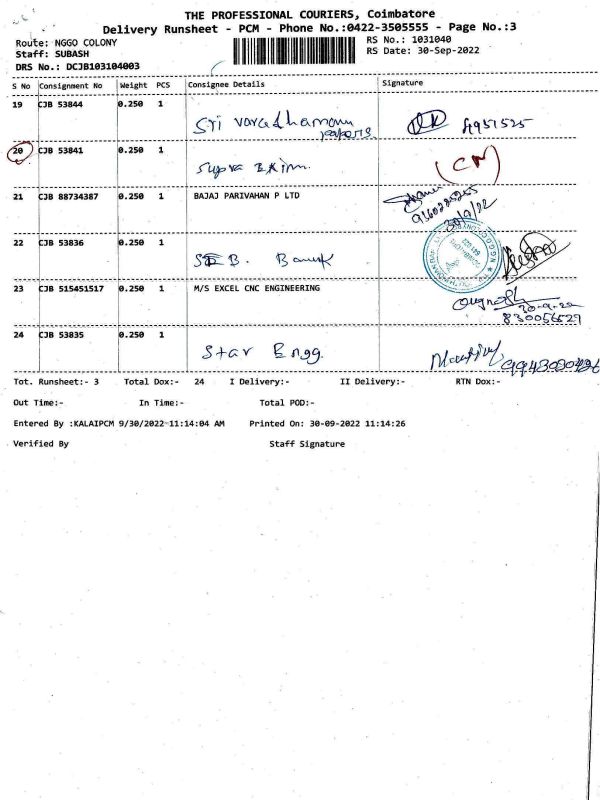 THE PROFESSIONAL COURIERS, Coimbatore
Delivery Runsheet - PCM - Phone No.:0422-3505555 - Page No.:3
Route: NGGO COLONY
RS No.: 1031040
Staff: SUBASH
RS Date: 30-Sep-2022
DRS No.: DCJB103104003
S No Consignment No Weight PCS Consignee Details Signature
19 CJB 53844 0.250 1
Sri
20 CJB 53841 0.250 1
Supra (CM)
21 CJB 88734387 0.250 1 BAJAJ PARIVAHAN P LTD
30/9/22
22 CJB 53836 0.250 1
B. Bank
23 CJB 515451517 0.250 1 M/S EXCEL CNC ENGINEERING
30-9-22
24 CJB 53835 0.250 1
Star Engg.
Tot. Runsheet:- 3 Total Dox:- 24 I Delivery:- II Delivery:- RTN Dox:-
Out Time:- In Time:- Total POD:-
Entered By :KALAIPCM 9/30/2022 11:14:04 AM Printed On: 30-09-2022 11:14:26
Verified By Staff Signature